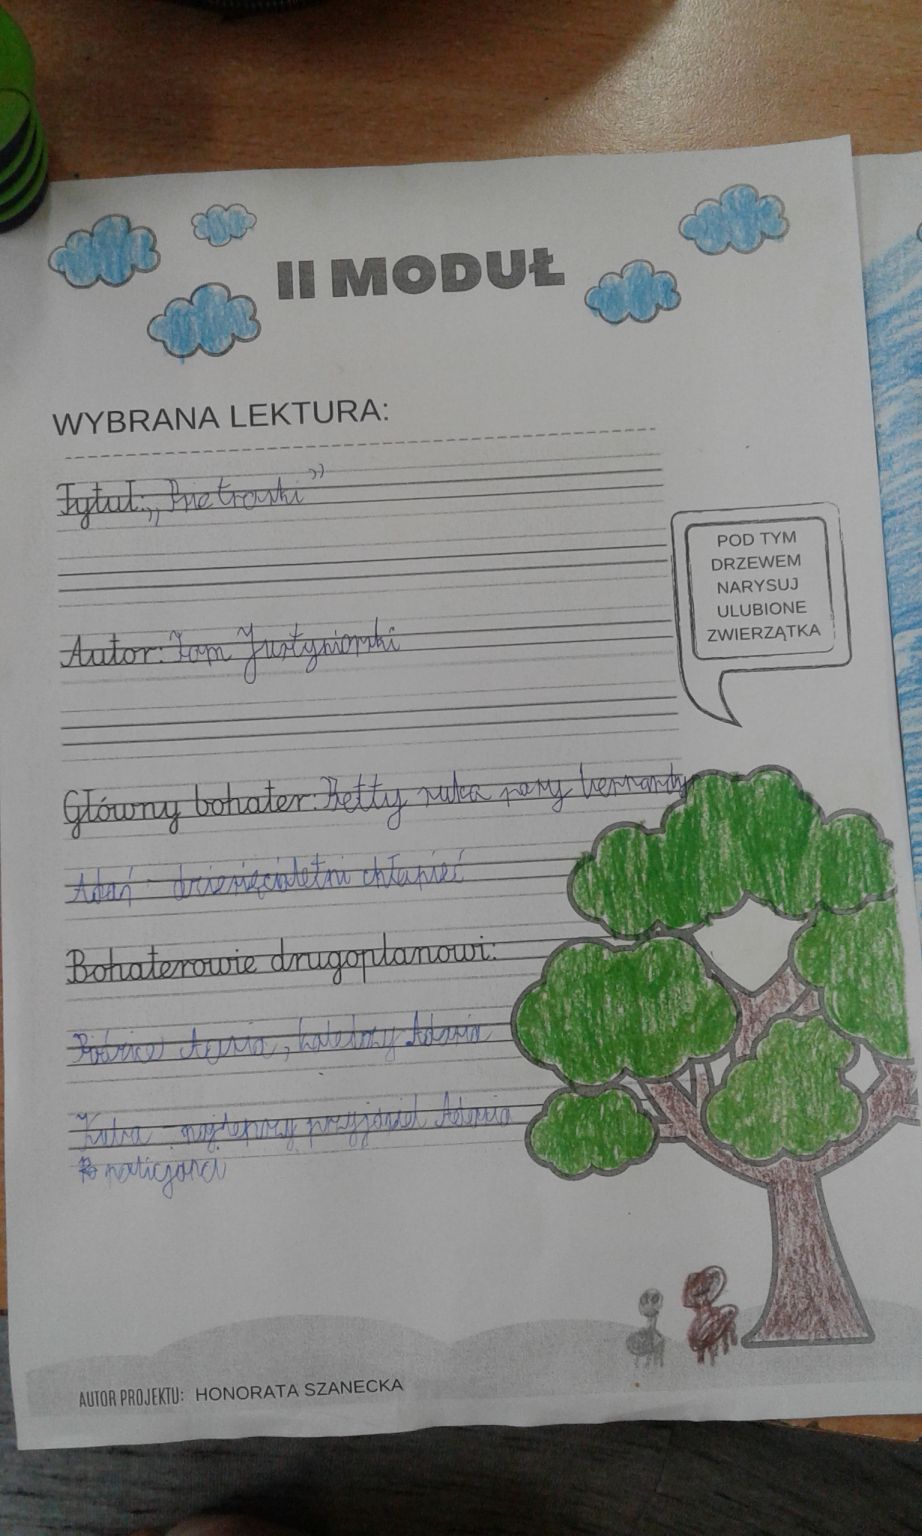 II MODUŁ
WYBRANA LEKTURA:
Tytuł: „Psie troski”
POD TYM
DRZEWEM
NARYSUJ
ULUBIONE
ZWIERZĄTKA
Autor: Tom Justyniarski
Główny bohater: Betty suka rasy bernardyn
Adaś - dziesięcioletni chłopiec
Bohaterowie drugoplanowi:
Rodzice Adasia, koledzy Adasia
Kuba - najlepszy przyjaciel Adasia
policjanci
AUTOR PROJEKTU: HONORATA SZANECKA